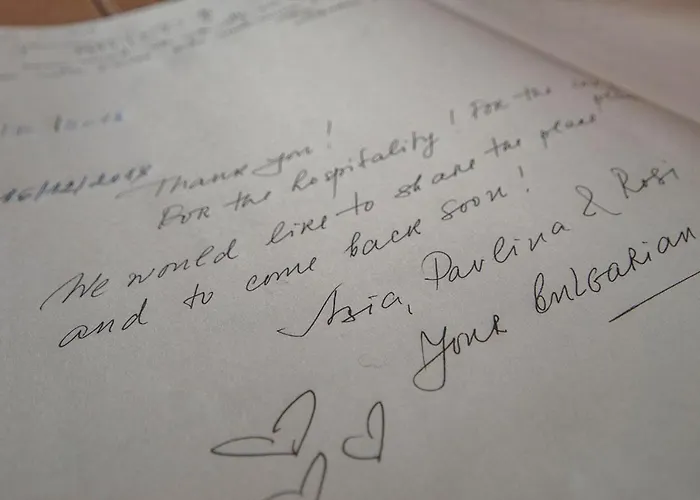 16/12/2018
Thank you!
For the hospitality! For the
We would like to share the place
and to come back soon!
Asia, Pavlina & Rosi
Your Bulgarian